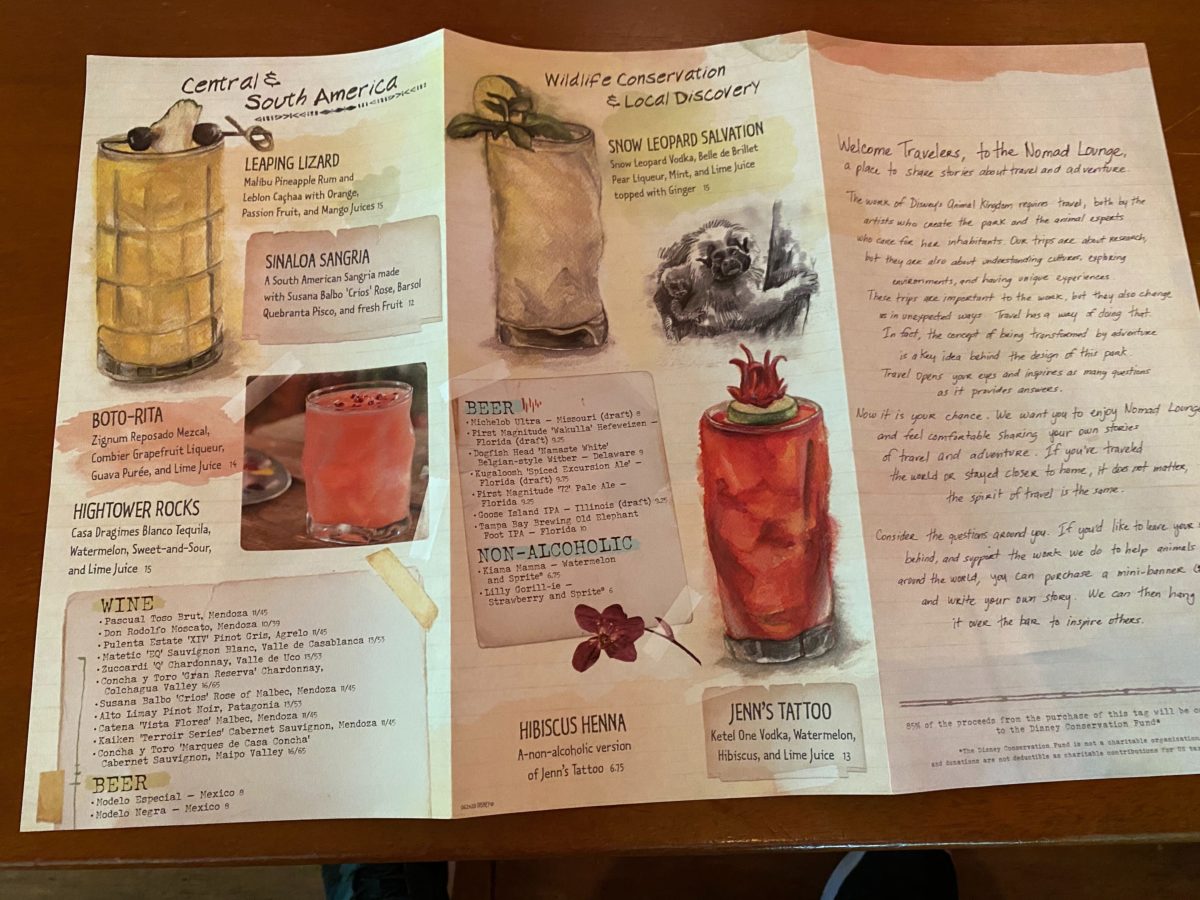 Central &
South America
LEAPING LIZARD
Malibu Pineapple Rum and
Leblon Caçhaa with Orange,
Passion Fruit, and Mango Juices 15
SINALOA SANGRIA
A South American Sangria made
with Susana Balbo 'Crios' Rose, Barsol
Quebranta Pisco, and fresh Fruit 12
BOTO-RITA
Zignum Reposado Mezcal,
Combier Grapefruit Liqueur,
Guava Purée, and Lime Juice 14
HIGHTOWER ROCKS
Casa Dragimes Blanco Tequila,
Watermelon, Sweet-and-Sour,
and Lime Juice 15
WINE
• Pascual Toso Brut, Mendoza 11/45
• Don Rodolfo Moscato, Mendoza 10/39
• Pulenta Estate 'XIV' Pinot Gris, Agrelo 11/45
• Matetic 'EQ' Sauvignon Blanc, Valle de Casablanca 13/53
• Zuccardi 'Q' Chardonnay, Valle de Uco 13/53
• Concha y Toro 'Gran Reserva' Chardonnay,
Colchagua Valley 16/65
• Susana Balbo 'Crios' Rose of Malbec, Mendoza 11/45
• Alto Limay Pinot Noir, Patagonia 13/53
• Catena 'Vista Flores' Malbec, Mendoza 11/45
• Kaiken 'Terroir Series' Cabernet Sauvignon, Mendoza 11/45
• Concha y Toro 'Marques de Casa Concha'
Cabernet Sauvignon, Maipo Valley 16/65
BEER
• Modelo Especial — Mexico 8
• Modelo Negra — Mexico 8
Wildlife Conservation
& Local Discovery
SNOW LEOPARD SALVATION
Snow Leopard Vodka, Belle de Brillet
Pear Liqueur, Mint, and Lime Juice
topped with Ginger 15
BEER
• Michelob Ultra — Missouri (draft) 8
• First Magnitude 'Wakulla' Hefeweizen —
Florida (draft) 9.25
• Dogfish Head 'Namaste White'
Belgian-style Witber — Delaware 9
• Kugaloosh 'Spiced Excursion Ale' —
Florida (draft) 9.75
• First Magnitude '72' Pale Ale —
Florida 9.25
• Goose Island IPA — Illinois (draft) 9.25
• Tampa Bay Brewing Old Elephant
Foot IPA — Florida 10
NON-ALCOHOLIC
• Kiama Mamma — Watermelon
and Sprite® 6.75
• Lilly Gorill-ie —
Strawberry and Sprite® 6
HIBISCUS HENNA
A-non-alcoholic version
of Jenn's Tattoo 6.75
JENN'S TATTOO
Ketel One Vodka, Watermelon,
Hibiscus, and Lime Juice 13
Welcome Travelers, to the Nomad Lounge,
a place to share stories about travel and adventure.
The work of Disney's Animal Kingdom requires travel, both by the
artists who create the park and the animal experts
who care for her inhabitants. Our trips are about research,
but they are also about understanding cultures, exploring
environments, and having unique experiences.
These trips are important to the work, but they also change
us in unexpected ways. Travel has a way of doing that.
In fact, the concept of being transformed by adventure
is a key idea behind the design of this park.
Travel opens your eyes and inspires as many questions
as it provides answers.
Now it is your chance. We want you to enjoy Nomad Lounge
and feel comfortable sharing your own stories
of travel and adventure. If you've traveled
the world or stayed closer to home, it does not matter,
the spirit of travel is the same.
Consider the questions around you. If you'd like to leave your
behind, and support the work we do to help animals
around the world, you can purchase a mini-banner
and write your own story. We can then hang
it over the bar to inspire others.
85% of the proceeds from the purchase of this tag will be
to the Disney Conservation Fund*
*The Disney Conservation Fund is not a charitable
and donations are not deductible as charitable contributions for US